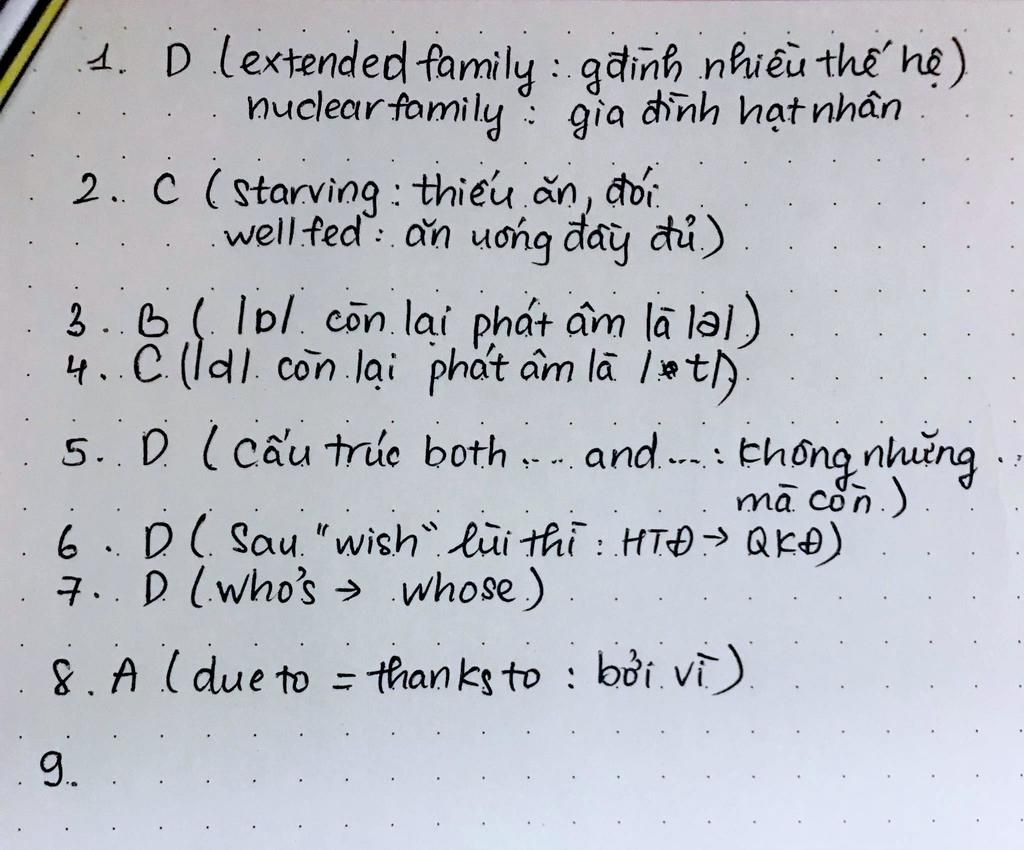 1. D (extended family : gđình nhiều thế hệ)
nuclear family : gia đình hạt nhân
2. C (starving : thiếu ăn, đói
well fed : ăn uống đầy đủ)
3. B ( /ɒ/ còn lại phát âm là /ə/)
4. C (/d/ còn lại phát âm là /t/)
5. D (Cấu trúc both .... and ....: không những
mà còn)
6. D (Sau "wish" lùi thì : HTĐ → QKĐ)
7. D (who's → whose)
8. A (due to = thanks to : bởi vì)
9.